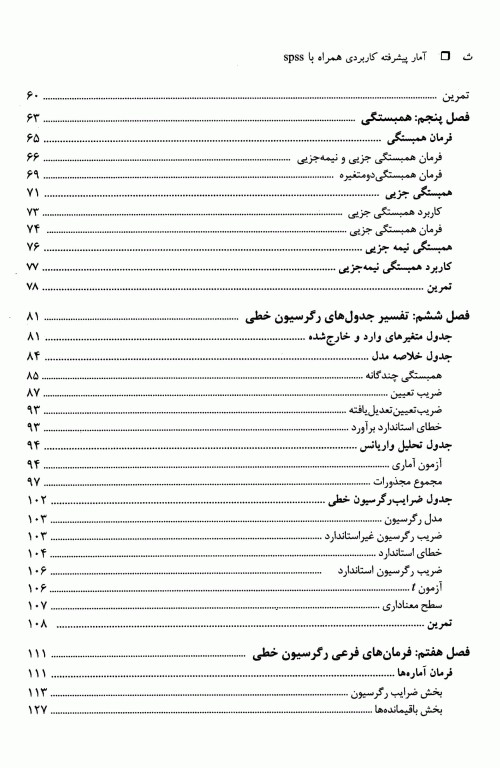 ت ❒ آمار پیشرفته کاربردی همراه با spss
تمرین ۶۰
فصل پنجم: همبستگی ۶۳
فرمان همبستگی ۶۵
فرمان همبستگی جزیی و نیمه‌جزیی ۶۶
فرمان همبستگی‌دومتغیره ۶۹
همبستگی جزیی ۷۱
کاربرد همبستگی جزیی ۷۳
فرمان همبستگی جزیی ۷۴
همبستگی نیمه جزیی ۷۶
کاربرد همبستگی نیمه‌جزیی ۷۷
تمرین ۷۸
فصل ششم: تفسیر جدول‌های رگرسیون خطی ۸۱
جدول متغیرهای وارد و خارج‌شده ۸۱
جدول خلاصه مدل ۸۴
همبستگی چندگانه ۸۵
ضریب تعیین ۸۷
ضریب‌تعیین‌تعدیل‌یافته ۹۳
خطای استاندارد برآورد ۹۳
جدول تحلیل واریانس ۹۴
آزمون آماری ۹۴
مجموع مجذورات ۹۷
جدول ضرایب‌رگرسیون خطی ۱۰۲
مدل رگرسیون ۱۰۳
ضریب رگرسیون غیراستاندارد ۱۰۳
خطای استاندارد ۱۰۴
ضریب رگرسیون استاندارد ۱۰۶
آزمون t ۱۰۶
سطح معناداری ۱۰۷
تمرین ۱۰۸
فصل هفتم: فرمان‌های فرعی رگرسیون خطی ۱۱۱
فرمان آماره‌ها ۱۱۱
بخش ضرایب رگرسیون ۱۱۳
بخش باقیمانده‌ها ۱۲۷